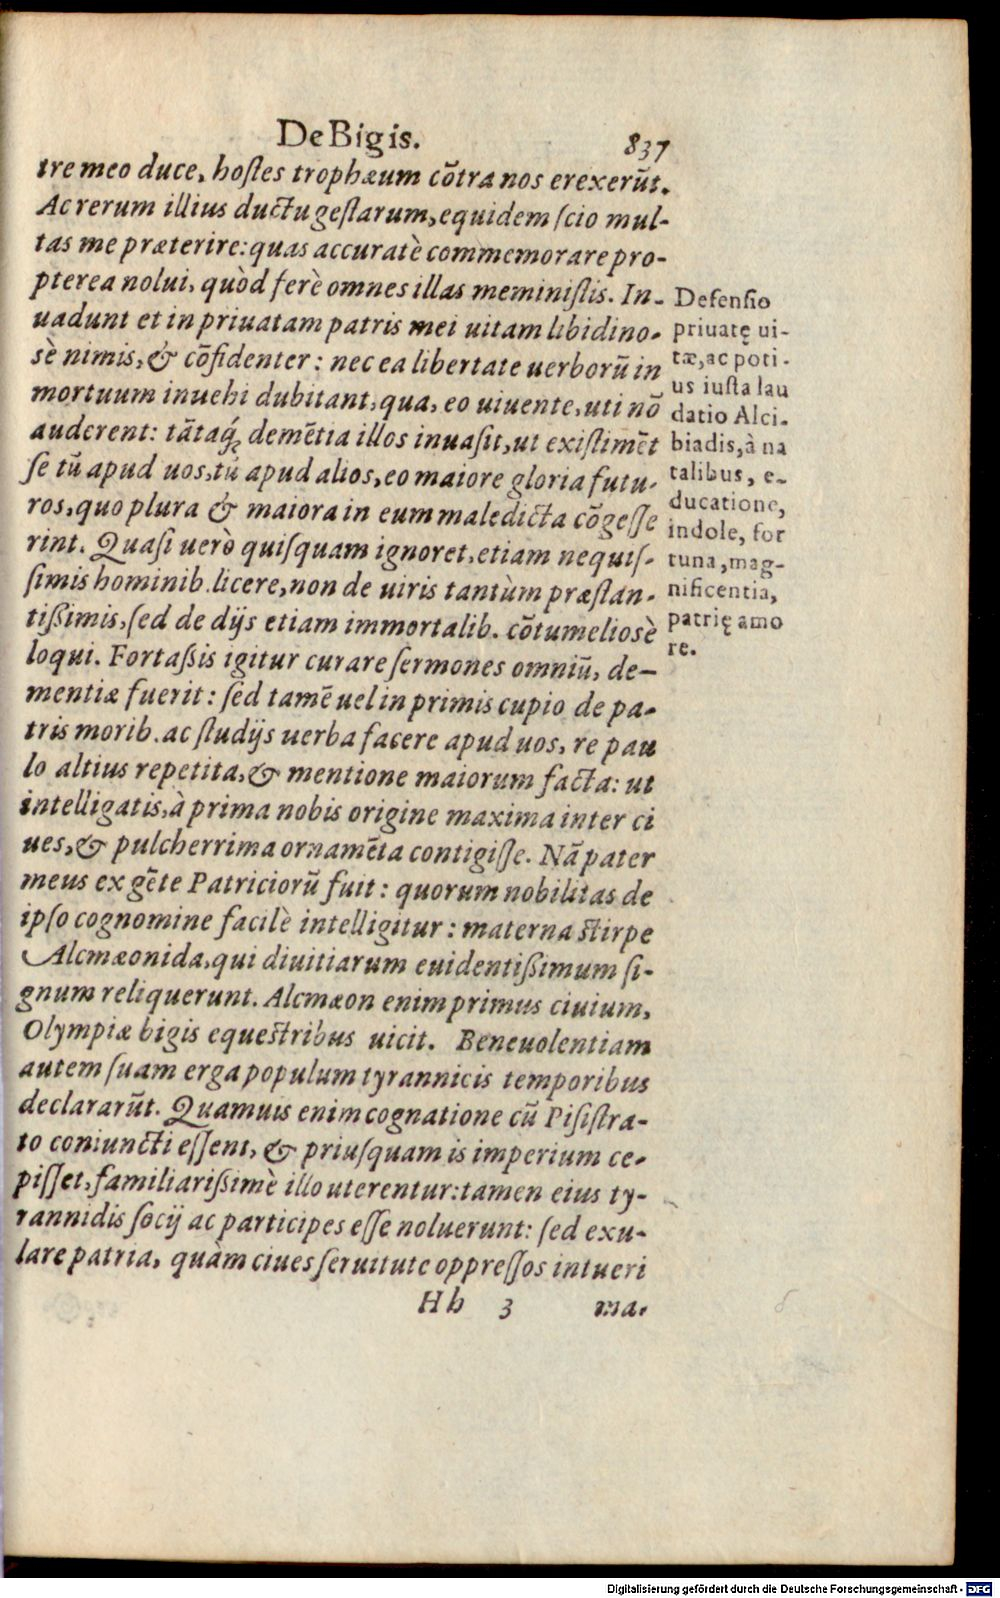 De Bigis. 837
tre meo duce, hostes trophæum cõtra nos erexerũt.
Ac rerum illius ductu gestarum, equidem scio mul-
tas me præterire: quas accuratè commemorare pro-
pterea nolui, quòd ferè omnes illas meministis. In-
uadunt et in priuatam patris mei uitam libidino-
sè nimis, & cõfidenter: nec ea libertate uerborũ in
mortuum inuehi dubitant, qua, eo uiuente, uti nõ
auderent: tãtaq́ꝫ demẽtia illos inuasit, ut existimẽt
se tũ apud uos, tũ apud alios, eo maiore gloria futu-
ros, quo plura & maiora in eum maledicta cõgesse
rint. Quasi uerò quisquam ignoret, etiam nequis-
simis hominib. licere, non de uiris tantùm præstan-
tißimis, sed de dijs etiam immortalib. cõtumeliosè
loqui. Fortaßis igitur curare sermones omniũ, de-
mentiæ fuerit: sed tamẽ uel in primis cupio de pa-
tris morib. ac studijs uerba facere apud uos, re pau
lo altius repetita, & mentione maiorum facta: ut
intelligatis, à prima nobis origine maxima inter ci
ues, & pulcherrima ornamẽta contigisse. Nã pater
meus ex gẽte Patriciorũ fuit: quorum nobilitas de
ipso cognomine facilè intelligitur: materna stirpe
Alcmæonida, qui diuitiarum euidentißimum si-
gnum reliquerunt. Alcmæon enim primus ciuium,
Olympiæ bigis equestribus uicit. Beneuolentiam
autem suam erga populum tyrannicis temporibus
declararũt. Quamuis enim cognatione cũ Pisistra-
to coniuncti essent, & priusquam is imperium ce-
pisset, familiarißimè illo uterentur: tamen eius ty-
rannidis socij ac participes esse noluerunt: sed exu-
lare patria, quàm ciues seruitute oppressos intueri
Hh 3 ma-
Defensio
priuatę ui-
tæ, ac poti-
us iusta lau
datio Alci-
biadis, à na
talibus, e-
ducatione,
indole, for
tuna, mag-
nificentia,
patrię amo
re.
Digitalisierung gefördert durch die Deutsche Forschungsgemeinschaft - DFG